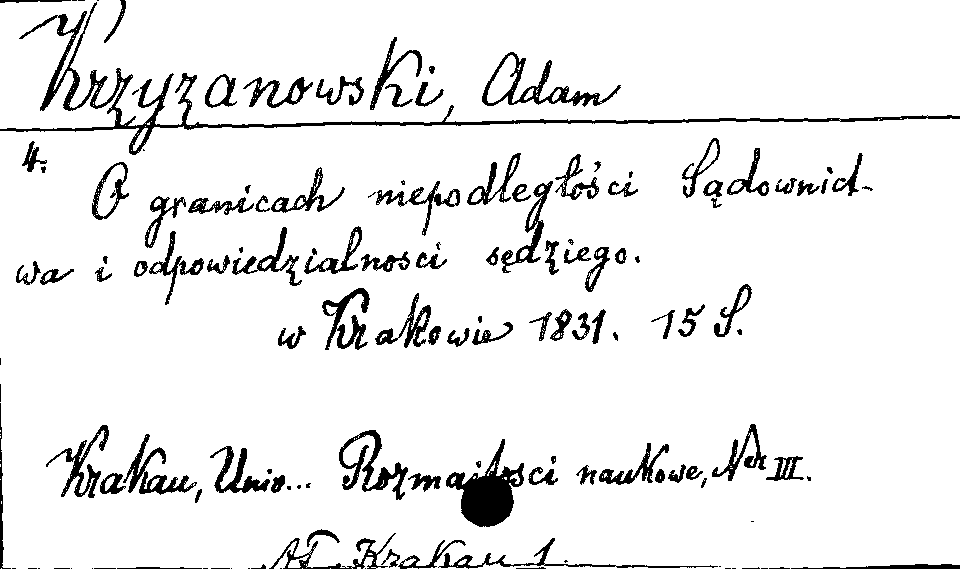 Krzyzanowski, Adam
4.
O granicach niepodległości Sądownict-
wa i odpowiedzialnosci sędziego.
w Krakowie 1831. 15 S.
Krakau, Univ... Rozmaitosci naukowe, Ner III.
AT Krakau 1.